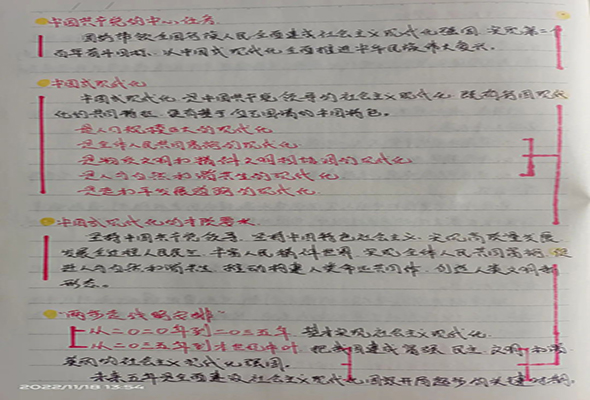 中国共产党的中心任务
团结带领全国各族人民全面建成社会主义现代化强国、实现第二个
百年奋斗目标，以中国式现代化全面推进中华民族伟大复兴。
中国式现代化
中国式现代化，是中国共产党领导的社会主义现代化，既有各国现代
化的共同特征，更有基于自己国情的中国特色。
是人口规模巨大的现代化
是全体人民共同富裕的现代化
是物质文明和精神文明相协调的现代化
是人与自然和谐共生的现代化
是走和平发展道路的现代化
中国式现代化的本质要求
坚持中国共产党领导，坚持中国特色社会主义，实现高质量发展，
发展全过程人民民主，丰富人民精神世界，实现全体人民共同富裕，促
进人与自然和谐共生，推动构建人类命运共同体，创造人类文明新
形态。
"两步走战略安排"
从二〇二〇年到二〇三五年，基本实现社会主义现代化
从二〇三五年到本世纪中叶，把我国建成富强、民主、文明、和谐
美丽的社会主义现代化强国。
未来五年是全面建设社会主义现代化国家开局起步的关键时期。
2022/11/18 13:54